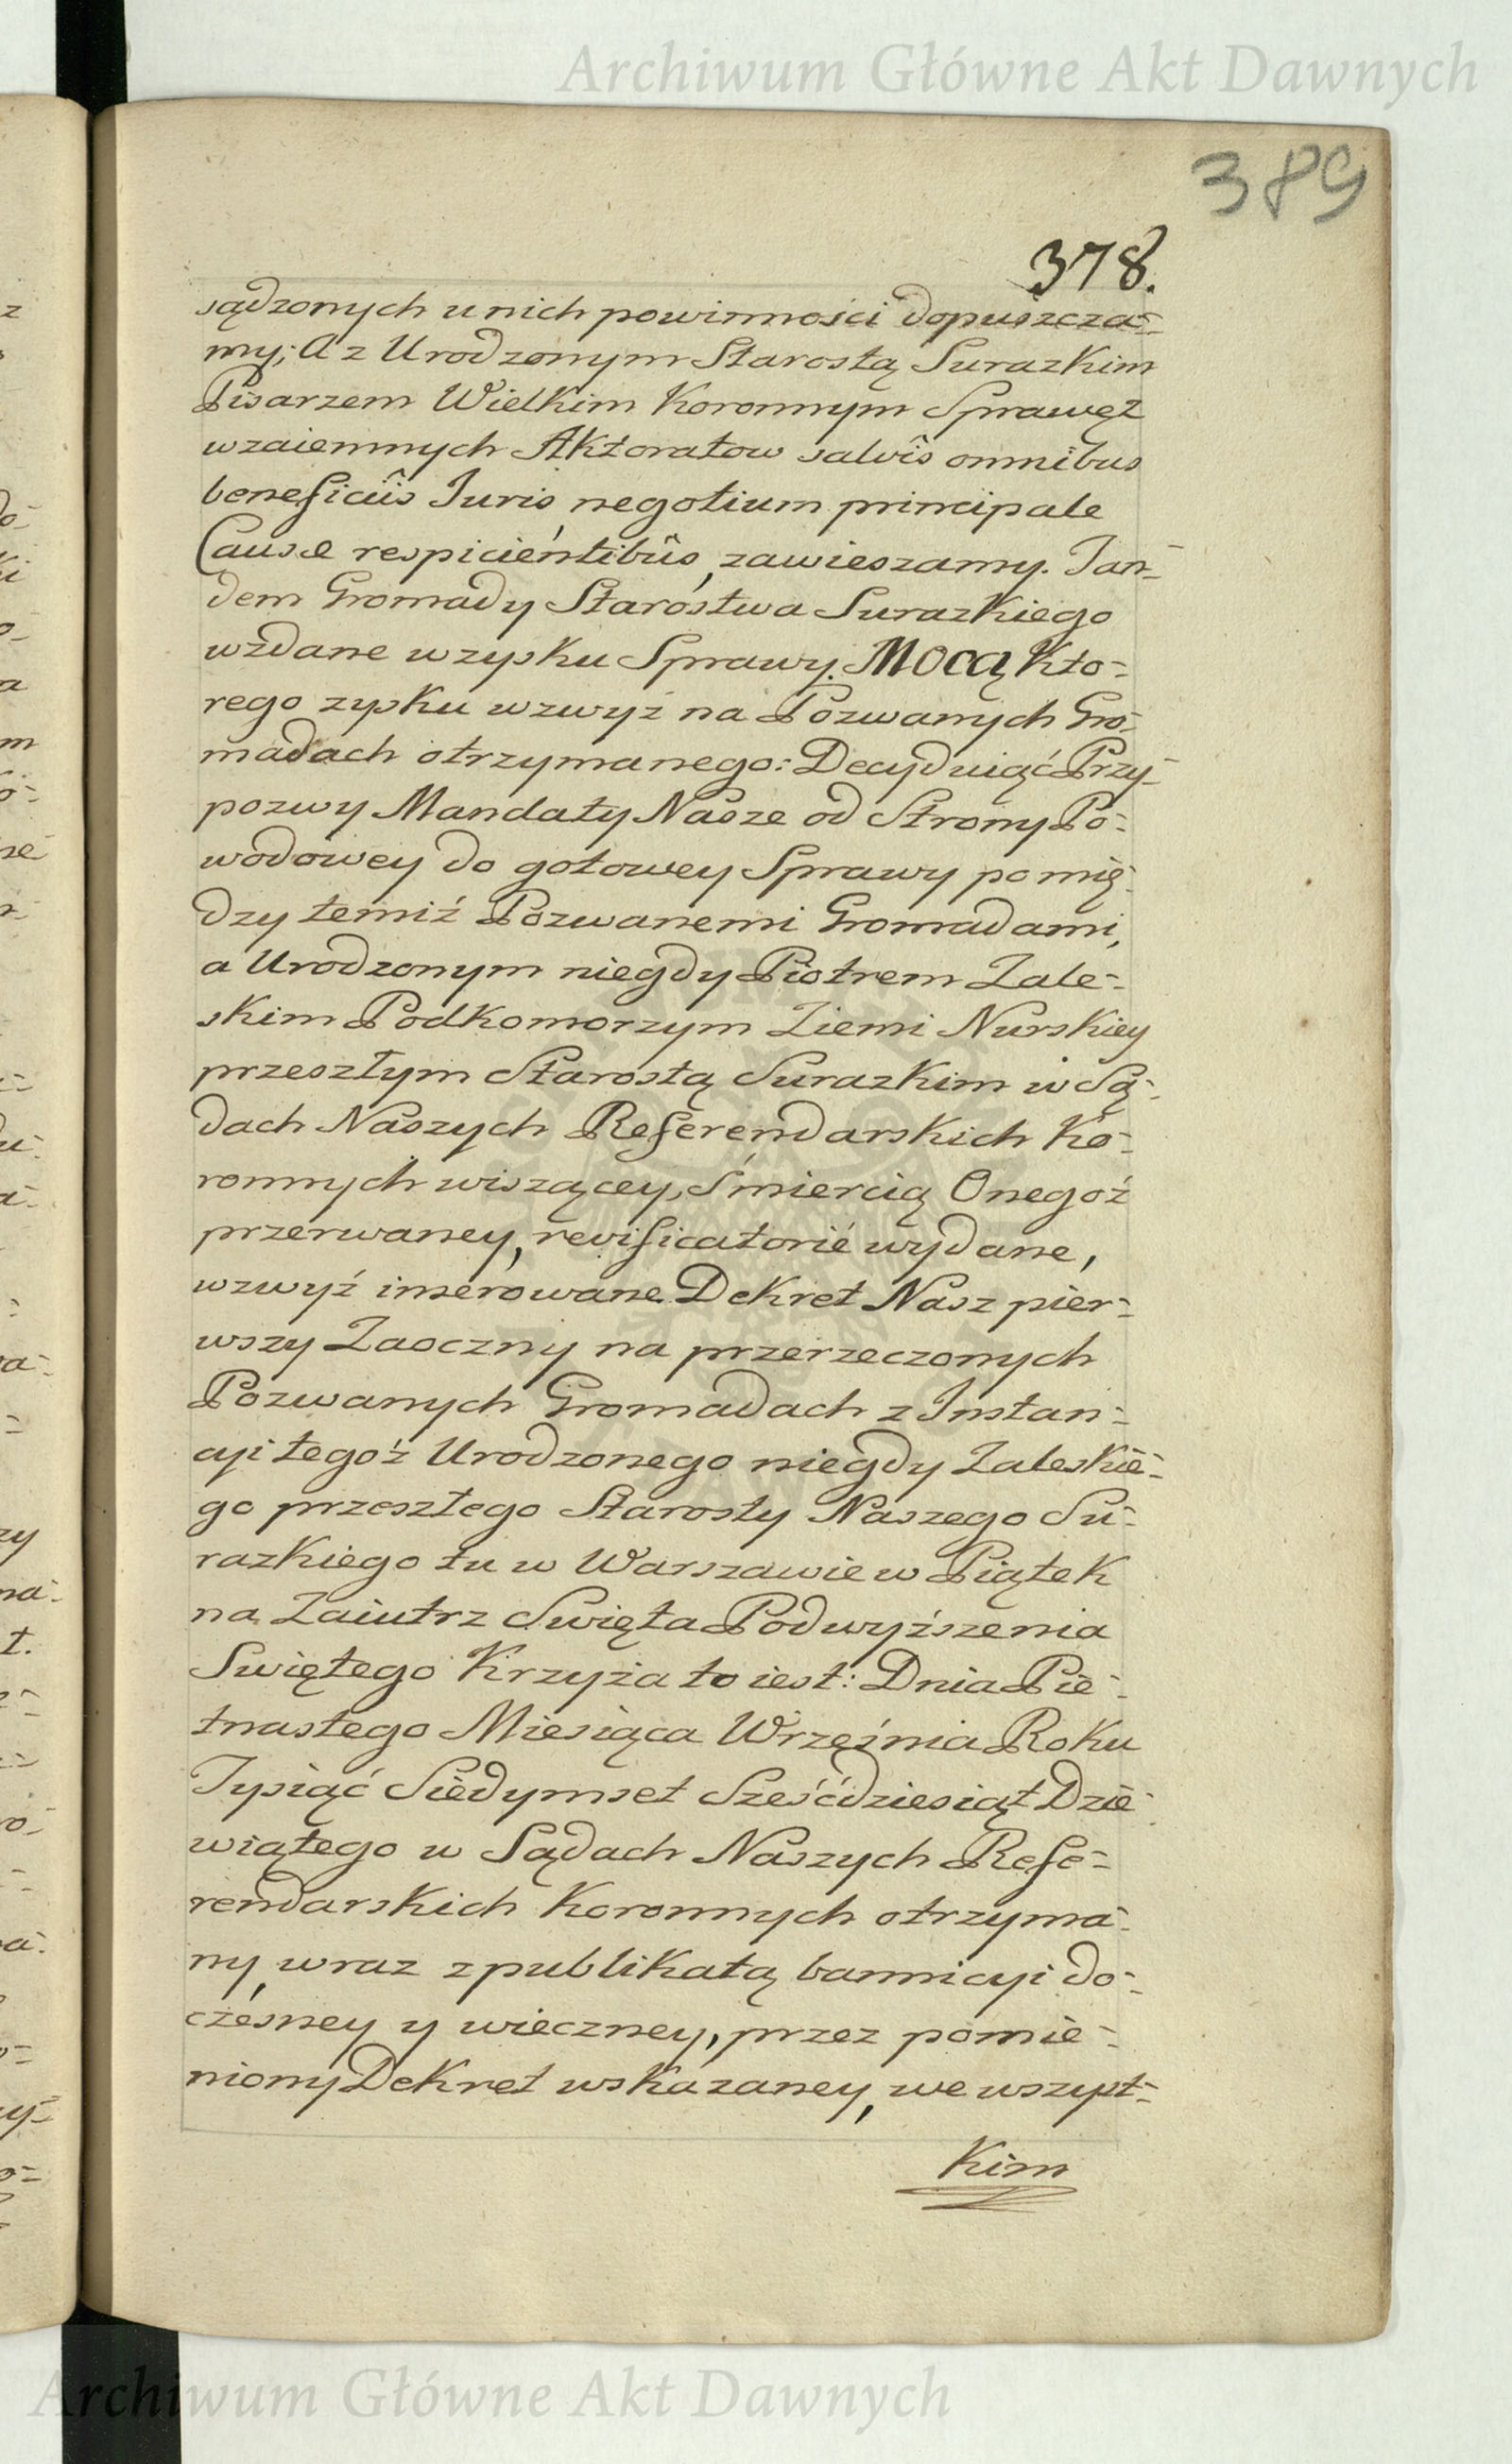 Archiwum Główne Akt Dawnych
389
378.
sądzonych u nich powinności dopuszcza=
my; A z Urodzonym Starostą Surazkim
Pisarzem Wielkim Koronnym Sprawęż
wzaiemnych Aktoratow salvis omnibus
beneficiis Iuris negotium principale
Causæ respicientibus, zawieszamy. Tan=
dem Gromady Starostwa Surazkiego
wzdane w zysku Sprawy. Mocą Kto=
rego zysku wzwyż na Pozwanych Gro=
madach otrzymanego: Decyduiąć Przy=
pozwy Mandaty Nasze od Strony Po=
wodowey do gotowey Sprawy pomię=
dzy temiż Pozwanemi Gromadami,
a Urodzonym niegdy Piotrem Zale=
skim Podkomorzym Ziemi Nurskiey
przeszłym Starostą Surazkim w Są=
dach Naszych Referendarskich Ko=
ronnych wiszącey, Śmiercią Onegoż
przerwaney, revificatorié wydane,
wzwyż inserowane Dekret Nasz pier=
wszy Zaoczny na przerzeczonych
Pozwanych Gromadach z Instan=
cyi tegoż Urodzonego niegdy Zaleskie=
go przeszłego Starosty Naszego Su=
razkiego tu w Warszawie w Piątek
na Zaiutrz Swięta Podwyższenia
Swiętego Krzyża to iest: Dnia Pię=
tnastego Miesiąca Wrzęśnia Roku
Tysiąć Siedymset Sześćdziesiąt Dzie=
wiątego w Sądach Naszych Refe=
rendarskich Koronnych otrzyma=
ny, wraz z publikatą bannicyi do=
cześney y wieczney, przez pomie=
niony Dekret wskazaney, we wszyst=
Kim
Archiwum Główne Akt Dawnych